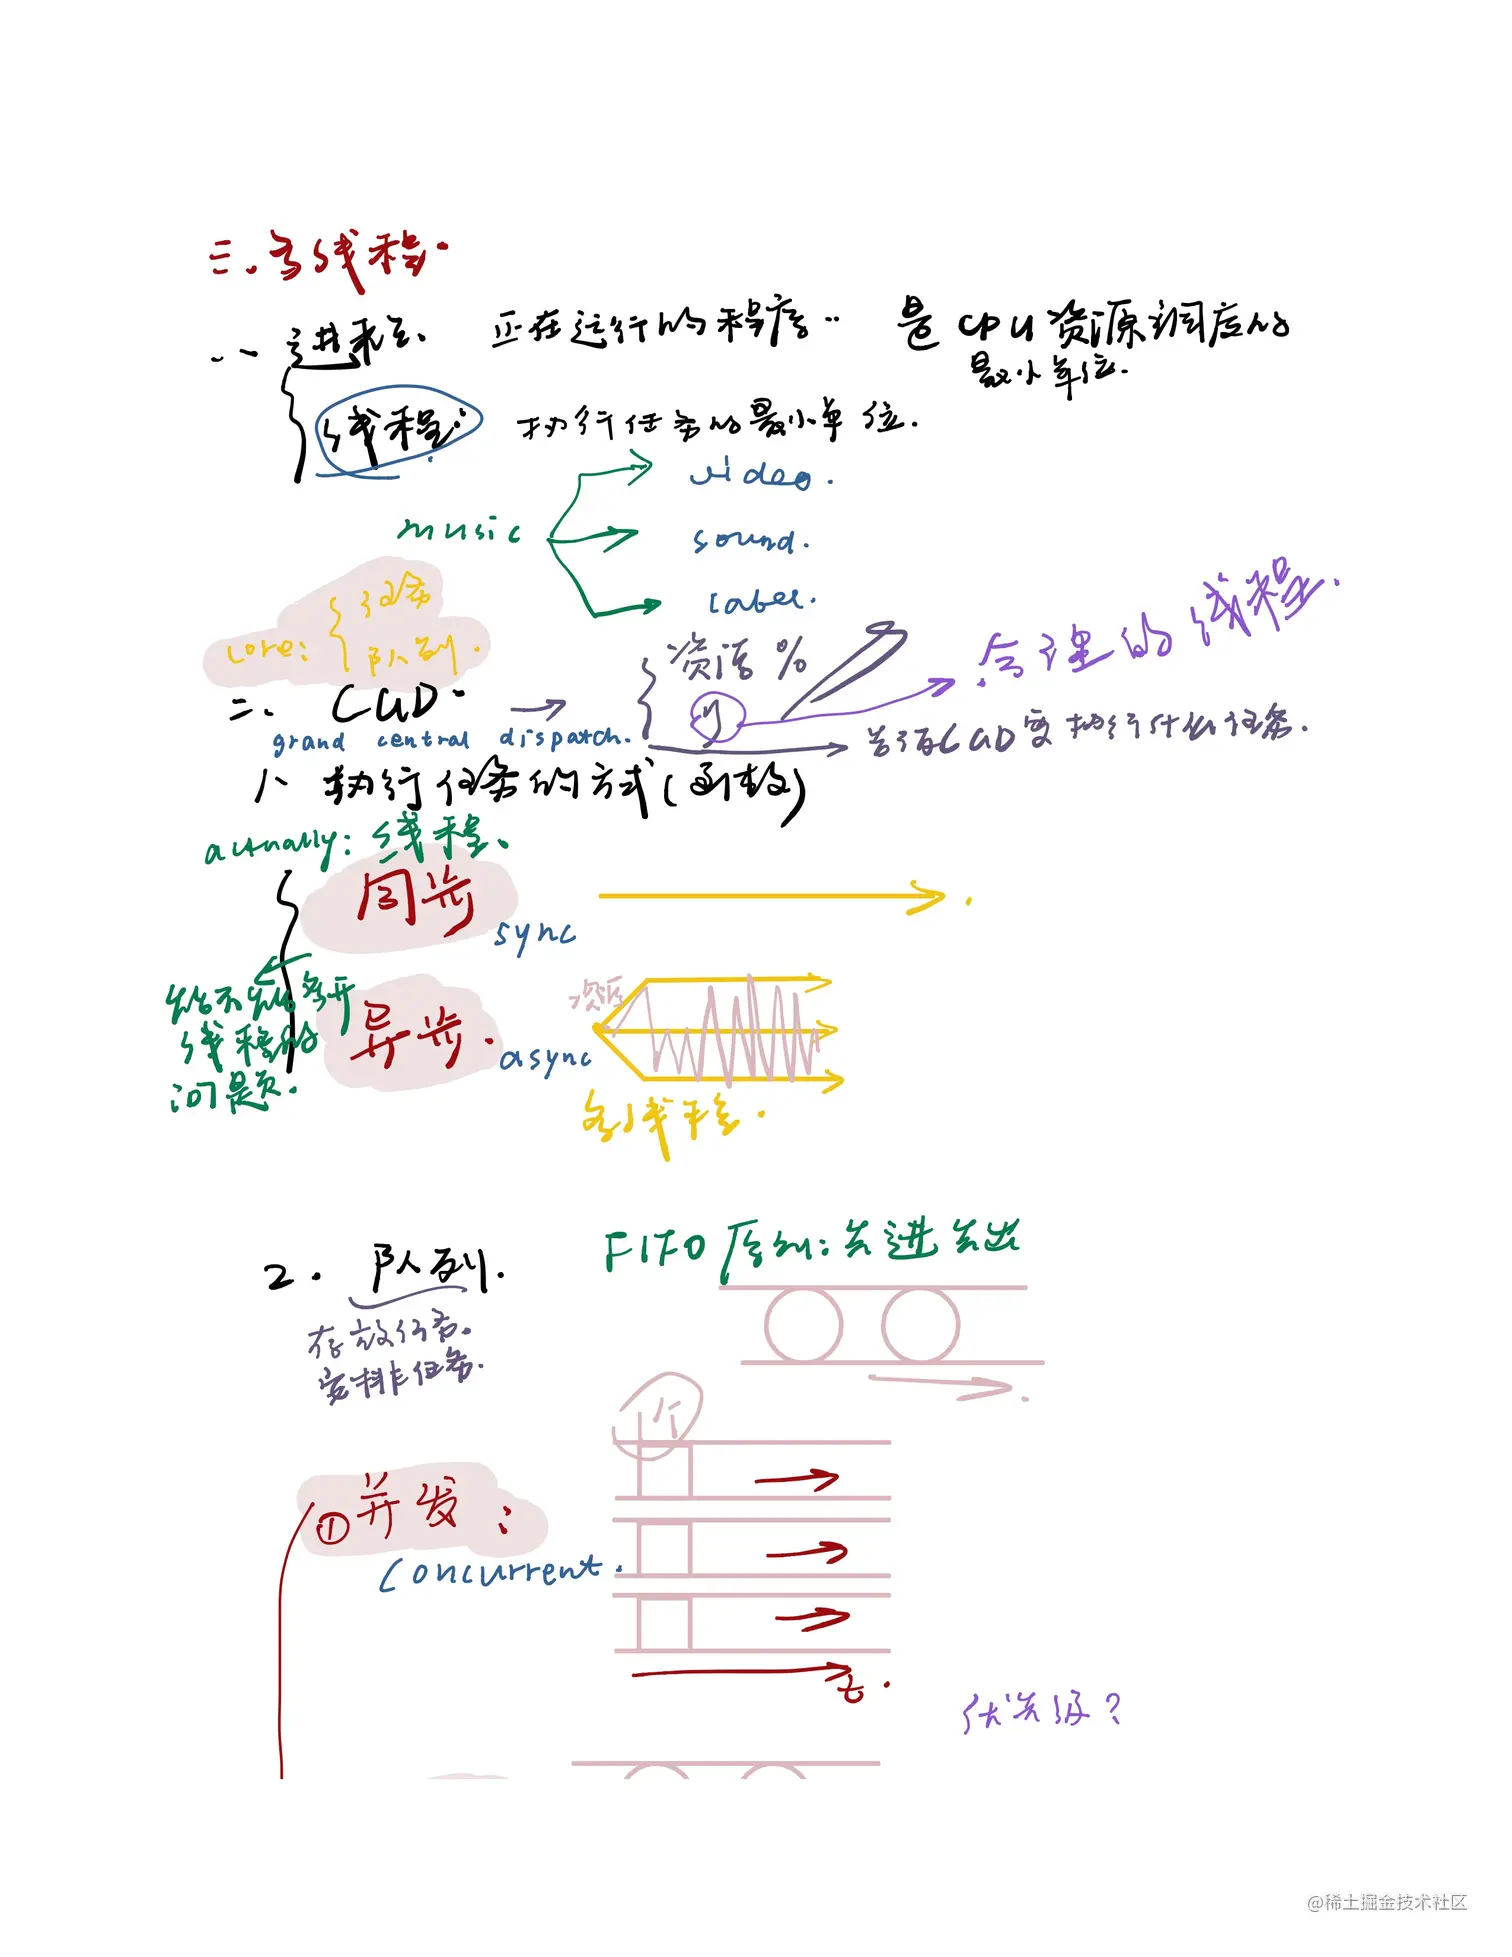 三、多线程.
一、进程、 正在运行的程序.. 是CPU资源调度的
最小单位.
线程: 执行任务的最小单位.
video.
music
sound.
label.
core: 任务
队列.
资源 %
合理的线程.
二、 GCD.
grand central dispatch.
告诉GCD要执行什么任务.
1、执行任务的方式(函数)
actually: 线程、
同步
sync
能不能多开
线程的
问题.
资源
异步.
async
多线程.
FIFO 原则: 先进先出
2. 队列.
存放任务.
安排任务.
1个
①并发:
concurrent.
t.
优先级?
@稀土掘金技术社区